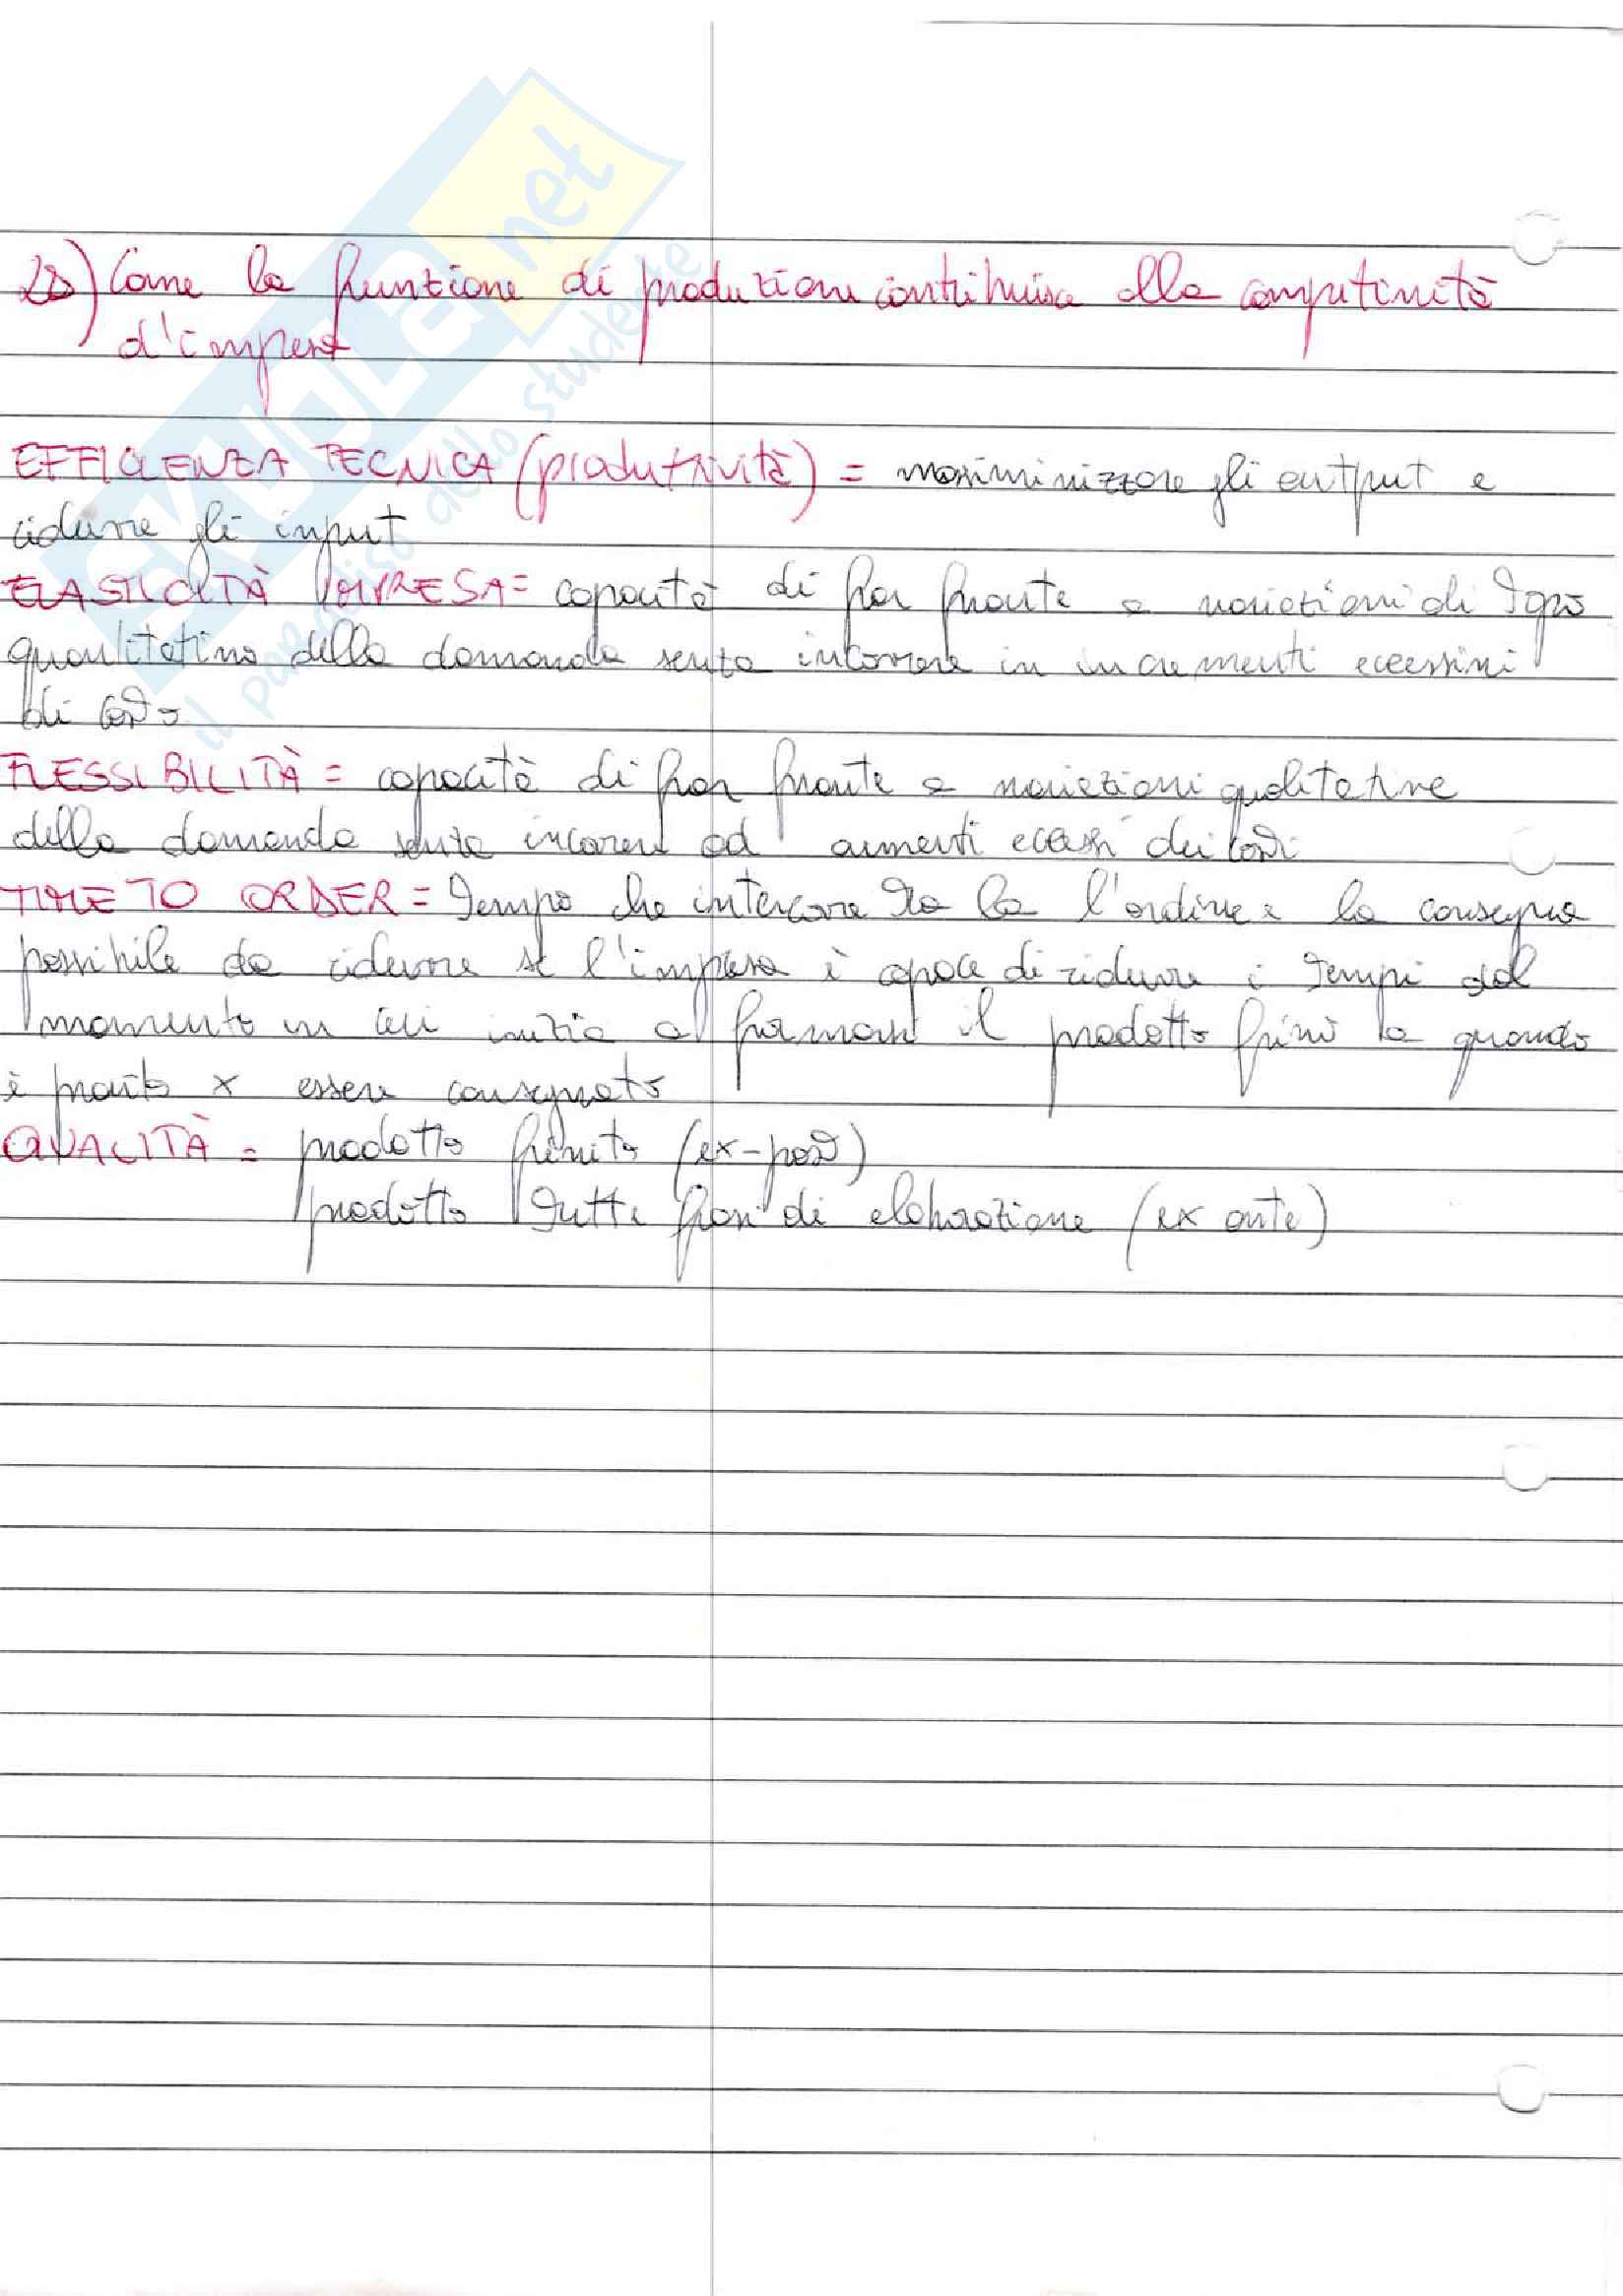 Come la funzione di produzione contribuisce alla competitività
d'impresa
EFFICIENZA TECNICA (produttività) = massiminizzare gli output e
ridurre gli input
ELASTICITÀ IMPRESA = capacità di far fronte a variazioni di tipo
quantitativo della domanda senza incorrere in incrementi eccessivi
di costo
FLESSIBILITÀ = capacità di far fronte a variazioni qualitative
della domanda senza incorrere ad aumenti eccessi dei costi
TIME TO ORDER = tempo che intercorre tra la l'ordine e la consegna
possibile da ridurre se l'impresa è capace di ridurre i tempi dal
momento in cui inizia a formarsi il prodotto finito a quando
è pronto x essere consegnato
QUALITÀ = prodotto finito (ex-post)
prodotto tutte fasi di elaborazione (ex ante)
SKUOLA.net
il paradiso dello studente